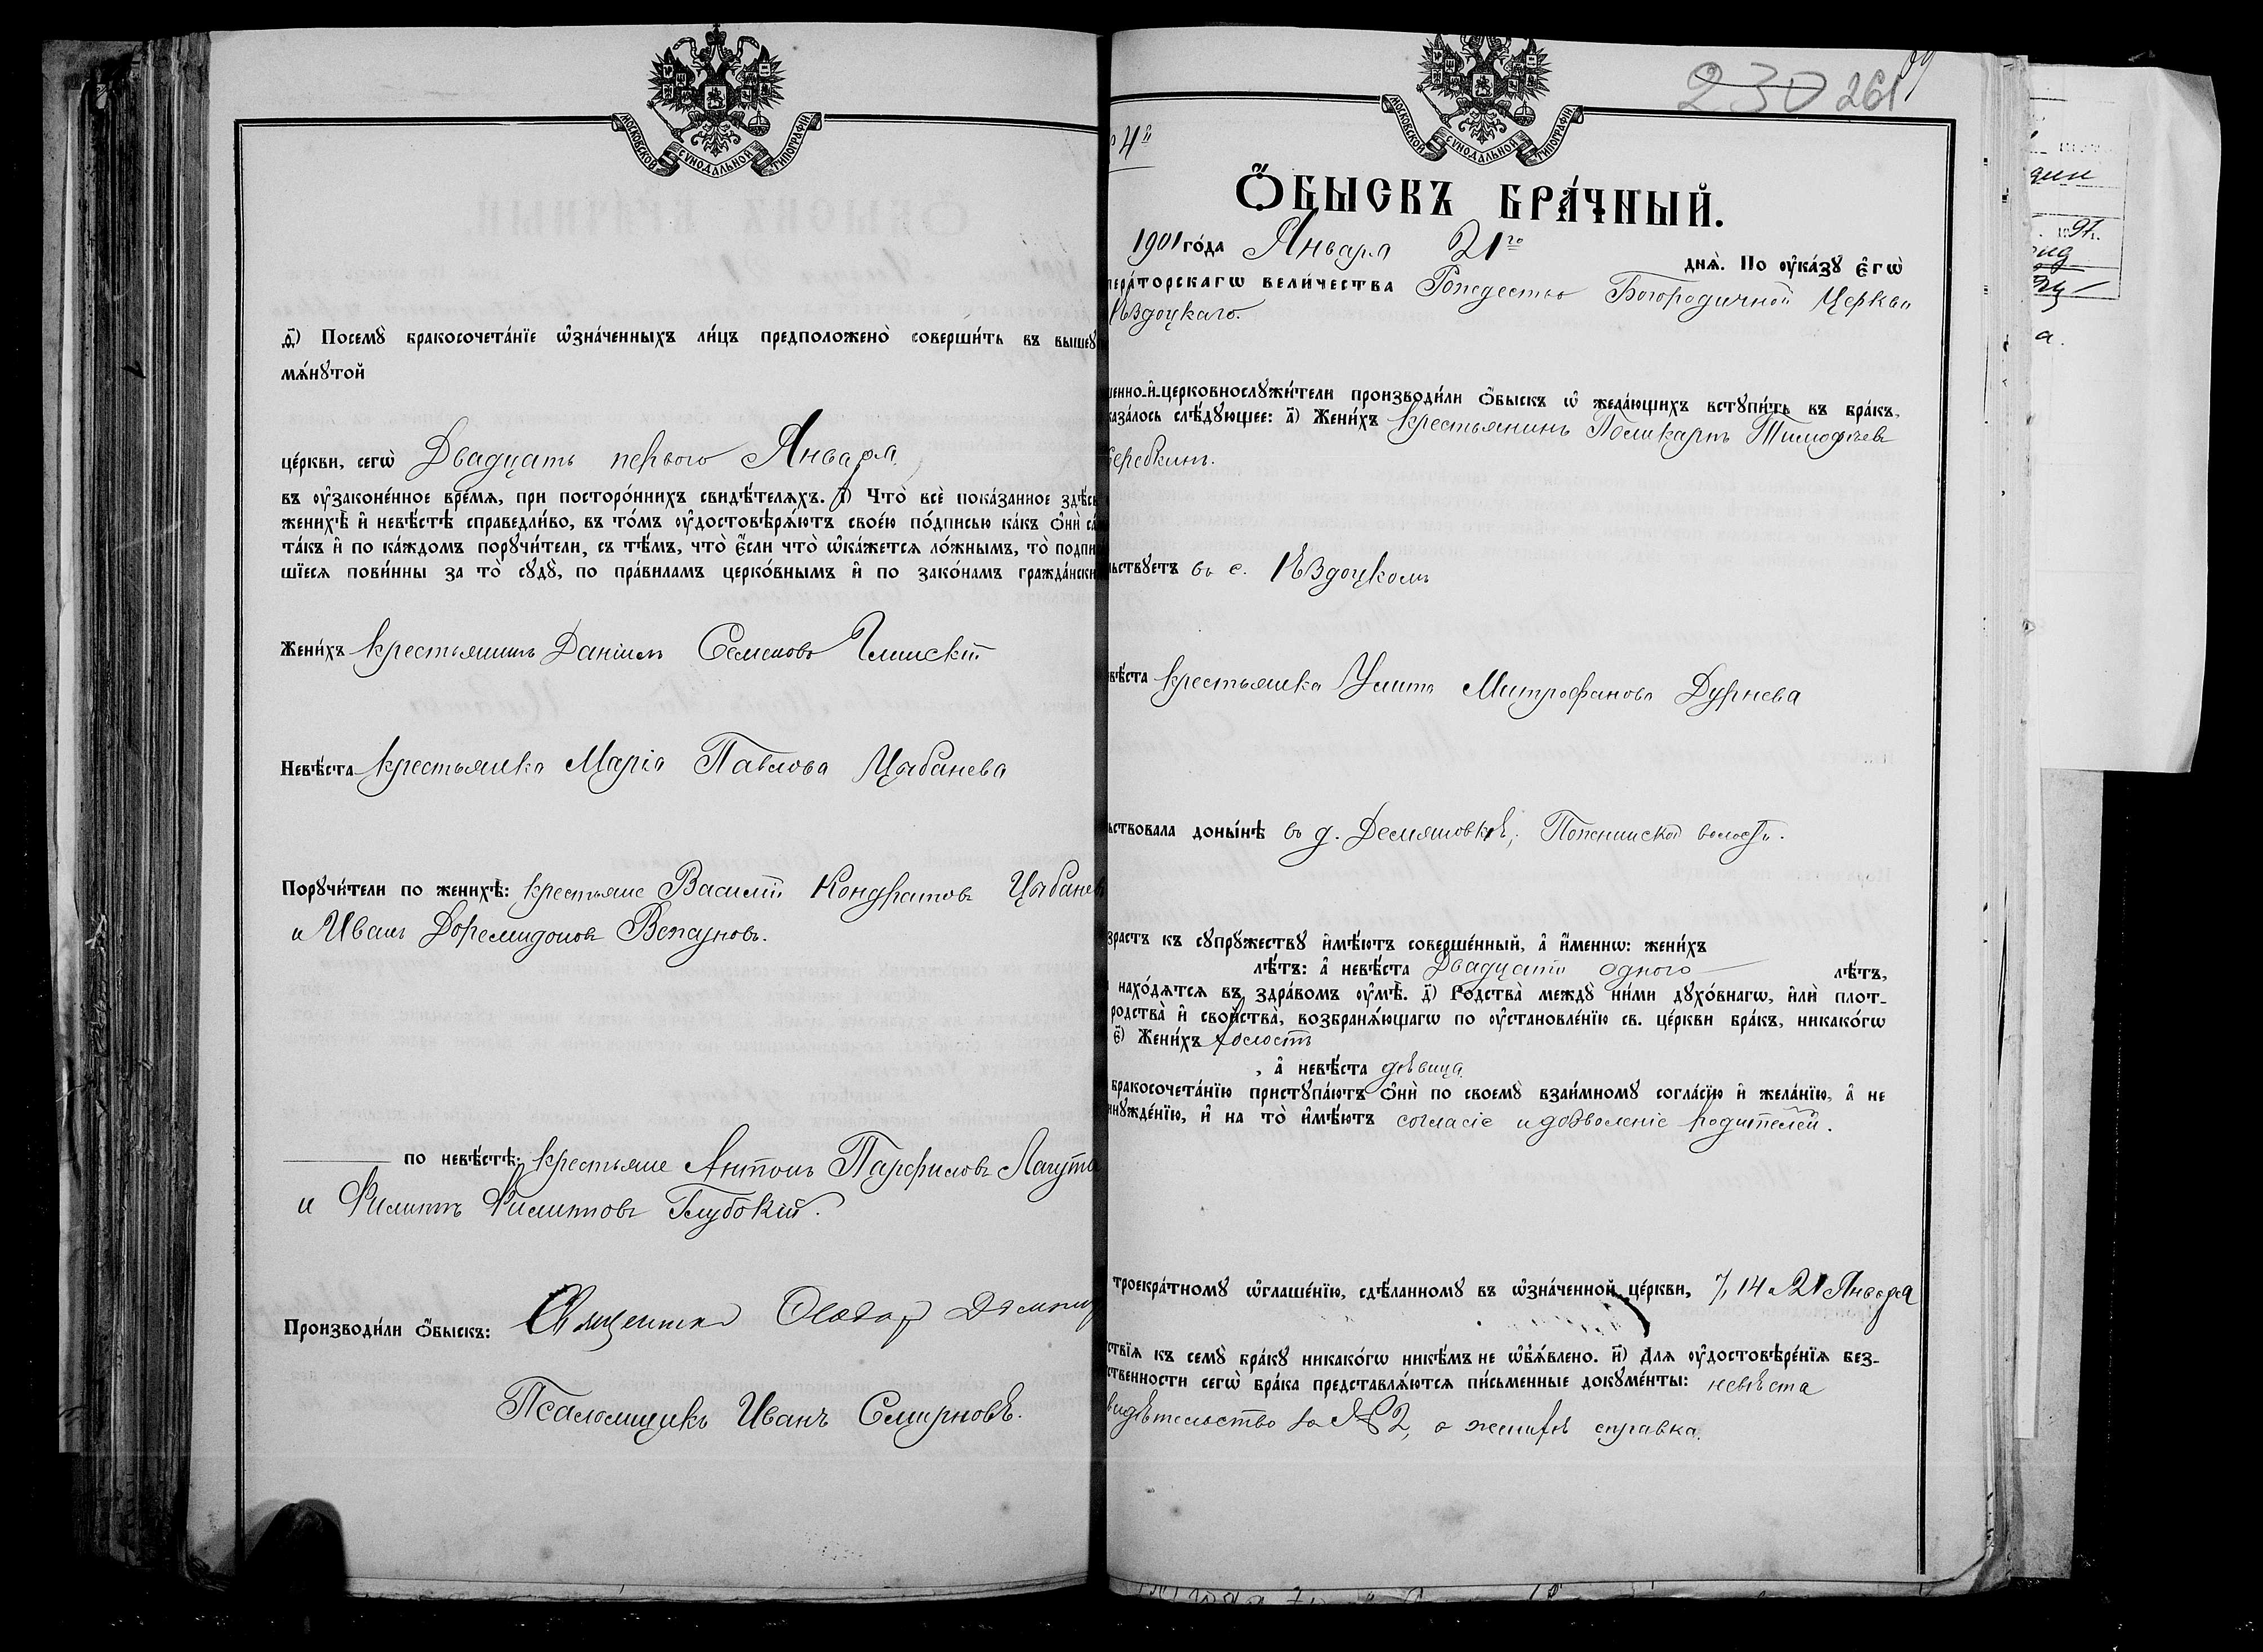 МОСКОВСКОЙ СУНОДАЛЬНОЙ ТИПОГРАФІИ
д҃і) Посемꙋ̀ бракосочета́нїе ѡ҆зна́ченныхъ ли́цъ предположено̀ соверши́ть въ вышеꙋ
мѧ́нꙋтой
це́ркви, сегѡ̀ Двадцать перваго Января
въ ᲂу҆зако́ненное вре́мѧ, при посторо́ннихъ свидѣ́телѧхъ. і҃) Что̀ всѐ пока́занное здѣ́сь
женихѣ̀ и҆ невѣ́стѣ справедли́во, въ то́мъ ᲂу҆достовѣрѧ́ютъ свое́ю по́дписью ка́къ ѻ҆нѝ са́
та́къ и҆ по ка́ждомъ порꙋчи́тели, съ тѣ́мъ, что̀ є҆́сли что̀ ѡ҆ка́жется ло́жнымъ, то̀ подпи
шїеся пови́нны за то̀ сꙋдꙋ̀, по пра́виламъ церко́внымъ и҆ по зако́намъ гражда́нски
Жени́хъ крестьянинъ Даніилъ Семеновъ Глинскій
Невѣ́ста крестьянка Марія Павлова Цыбанева
Порꙋчи́тели по женихѣ̀: крестьяне Василій Кондратовъ Цыбанев
и Иванъ Доремидоновъ
по невѣ́стѣ: крестьяне Антонъ Парфиловъ Лагута
и Филиппъ Филипповъ Глубокій.
Производи́ли ѻ҆́быскъ: Священникъ
Псаломщикъ Иванъ Смирновъ.
230 261
МОСКОВСКОЙ СУНОДАЛЬНОЙ ТИПОГРАФІИ
4й
Ѻ҆́БЫСКЪ БРА́ЧНЫЙ.
1901 го́да Января 21го днѧ̀. По ᲂу҆ка́зꙋ є҆гѡ̀
пера́торскагѡ вели́чества Рождество Богородичной Церкви
Ѣздоцкаго.
енно-и҆-церковнослꙋжи́тели производи́ли ѻ҆́быскъ ѡ҆ жела́ющихъ встꙋпи́ть въ бра́къ,
каза́лось слѣ́дꙋющее: а҃) Жени́хъ крестьянинъ Поликарпъ Тимофѣевъ
Серебкинъ.
льствꙋетъ въ с. Ѣздоцкомъ
вѣ́ста крестьянка Улита Митрофанова Дурнева
ьствовала доны́нѣ въ д. Демяновкѣ, волости.
зрастъ къ сꙋпрꙋжествꙋ и҆мѣ́ютъ соверше́нный, а҆ и҆́меннѡ: жени́хъ
лѣ́тъ: а҆ невѣ́ста Двадцати одного лѣ́тъ,
нахо́дѧтся въ здра́вомъ ᲂу҆мѣ̀. д҃) Родства̀ междꙋ̀ ни́ми дꙋхо́внагѡ, и҆лѝ плот-
родства̀ и҆ сво́йства̀, возбранѧ́ющагѡ по ᲂу҆становле́нїю св. це́ркви бра́къ, никако́гѡ
є҃) Жени́хъ холостъ
, а҆ невѣ́ста дѣвица.
бракосочета́нїю пристꙋпа́ютъ ѻ҆нѝ по своемꙋ̀ взаи́мномꙋ согла́сїю и҆ жела́нїю, а҆ не
инꙋжде́нїю, и҆ на то̀ и҆мѣ́ютъ согласіе и дозволеніе родителей.
троекра́тномꙋ ѡ҆глаше́нїю, сдѣ́ланномꙋ въ ѡ҆зна́ченной це́ркви, 7, 14 и 21 Января
ствїѧ къ семꙋ̀ бра́кꙋ никако́гѡ никѣ́мъ не ѡ҆б̾ѧ́влено. и҃) Длѧ ᲂу҆достовѣре́нїѧ без-
ственности сегѡ̀ бра́ка представлѧ́ются пи́сьменные докꙋме́нты: невѣста
видѣтельство за № 2, о женихѣ справка.